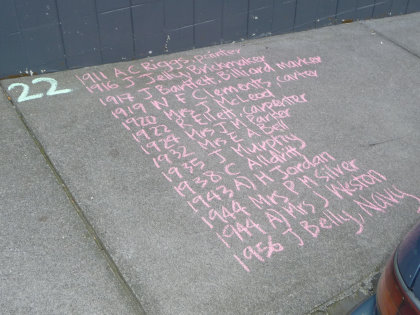 22
1911 A C Riggs, painter
1916 J Jelly Brickmaker
1917 J Bartlett Billiard marker
1919 W F Clements, carter
1920 Mrs J McLeod
1922 R Ellett carpenter
1924 Mrs J M Carter
1932 Mrs E A Bell
1935 J Murphy
1938 C Alldritt
1943 A) H Jordan
1944 Mrs P M Silver
1944 A) Mrs J Weston
1956 J Belly, Navy